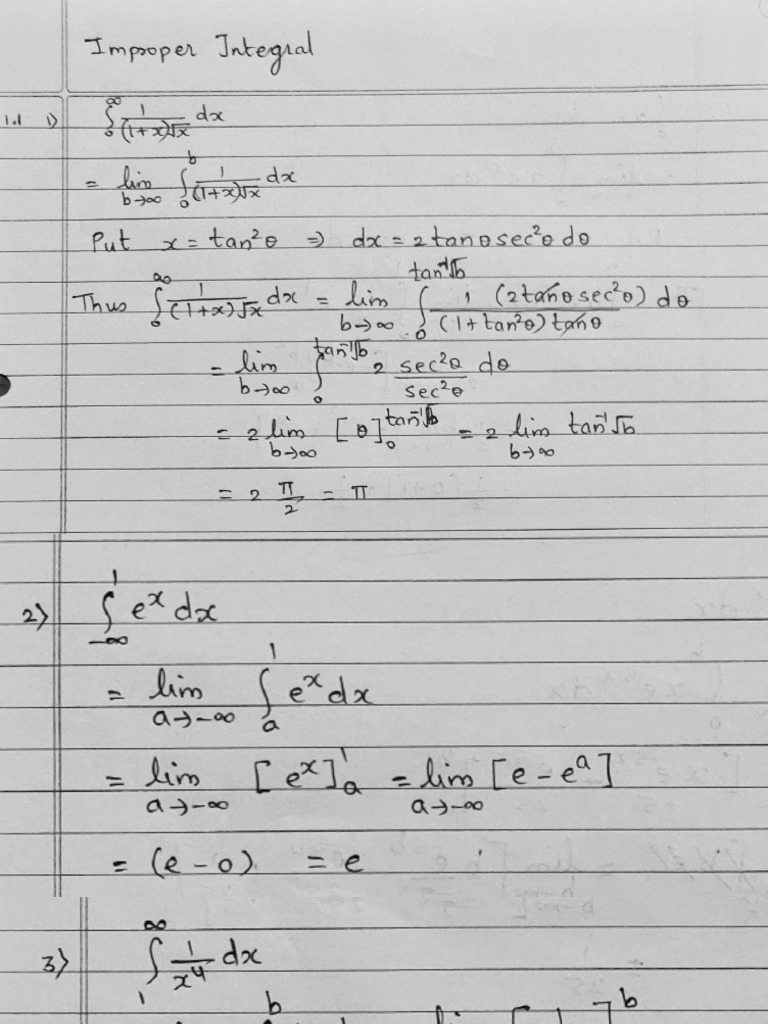 Improper Integral
1.1 1) ∫₀^∞ 1/((1+x)√x) dx
= lim_{b→∞} ∫₀^b 1/((1+x)√x) dx
Put x = tan²θ ⇒ dx = 2tanθ sec²θ dθ
Thus ∫₀^∞ 1/((1+x)√x) dx = lim_{b→∞} ∫₀^{tan⁻¹√b} 1 (2tanθ sec²θ) dθ/((1+tan²θ) tanθ)
= lim_{b→∞} ∫₀^{tan⁻¹√b} 2 sec²θ/sec²θ dθ
= 2 lim_{b→∞} [θ]₀^{tan⁻¹√b} = 2 lim_{b→∞} tan⁻¹√b
= 2 π/2 = π
2) ∫_{-∞}^1 e^x dx
= lim_{a→-∞} ∫_a^1 e^x dx
= lim_{a→-∞} [e^x]_a^1 = lim_{a→-∞} [e - e^a]
= (e - 0) = e
3) ∫₁^∞ 1/x⁴ dx